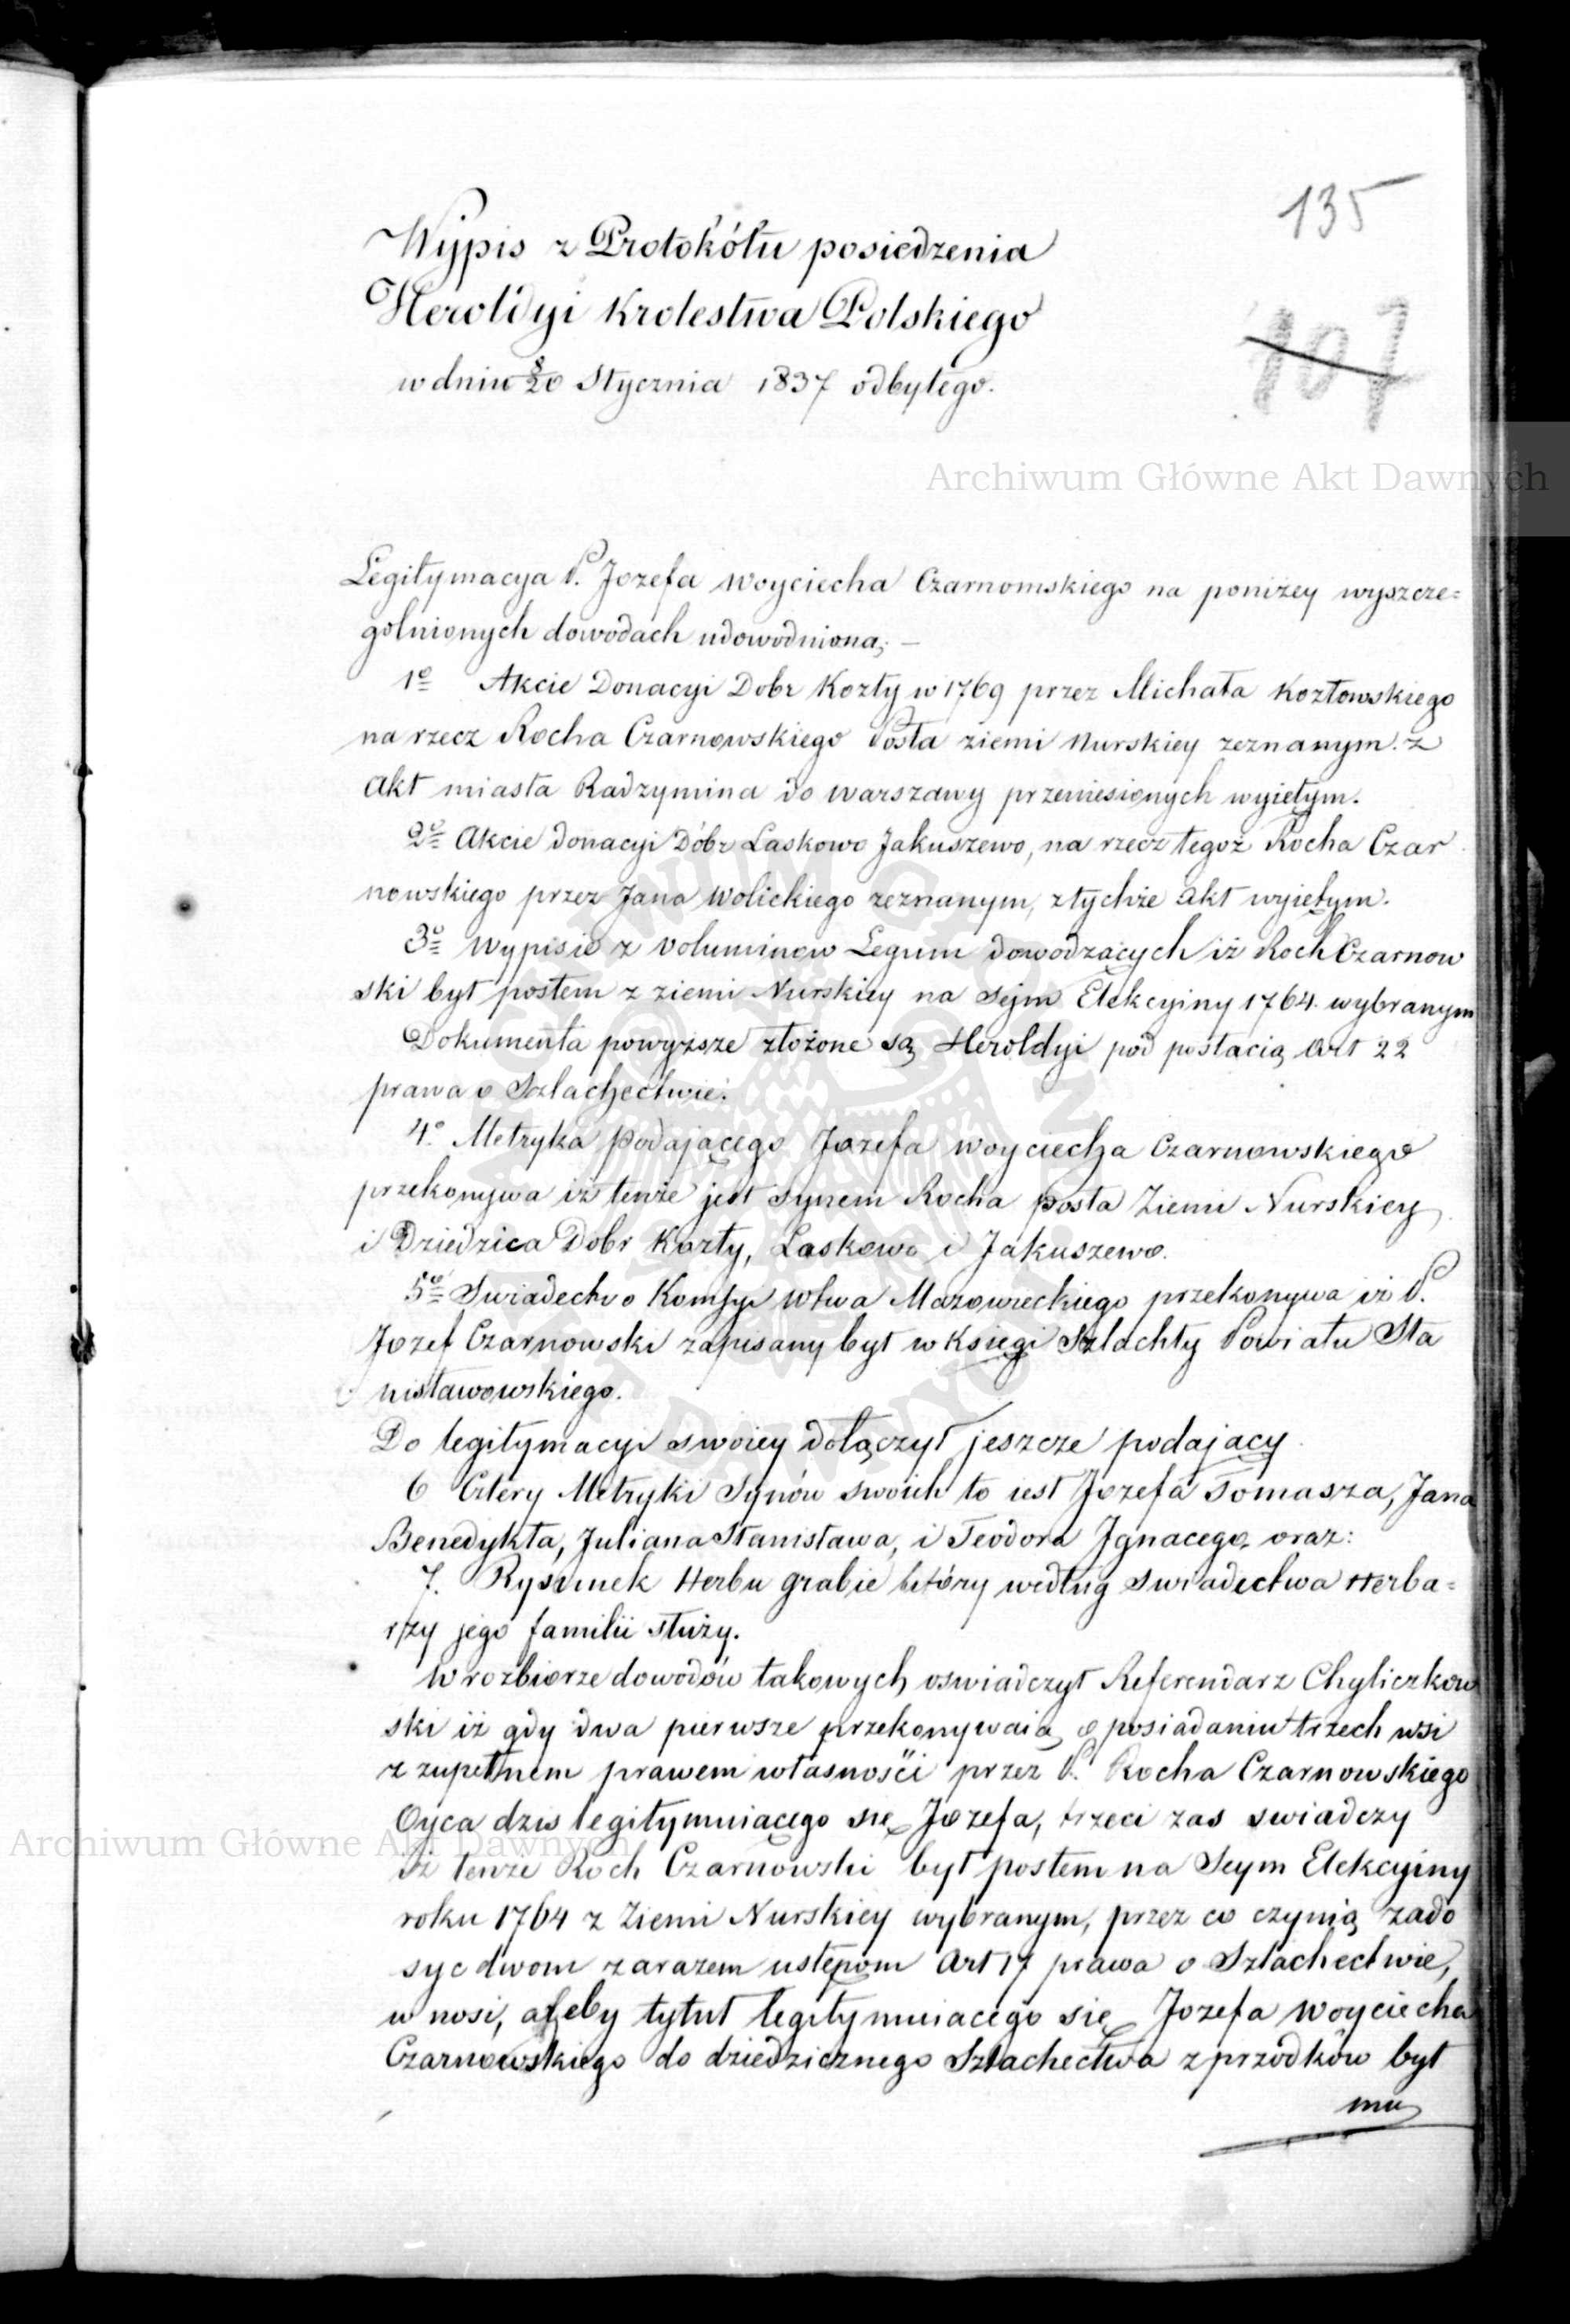 135
Wypis z Protokółu posiedzenia
Heroldyi Krolestwa Polskiego
w dniu 8/20 Stycznia 1837 odbytego.
107
Archiwum Główne Akt Dawnych
Legitymacya P. Jozefa Woyciecha Czarnomskiego na ponizey wyszcze=
golnionych dowodach udowodniona; —
1o Akcie Donacyi Dobr Kozły w 1769 przez Michała Kozłowskiego
na rzecz Rocha Czarnowskiego Posła ziemi Nurskiey zeznanym. z
Akt miasta Radzymina do Warszawy przeniesionych wyiętym.
2o Akcie donacyi Dóbr Laskowo Jakuszewo, na rzecz tegoż Rocha Czar
nowskiego przez Jana Wolickiego zeznanym, z tychże Akt wyiętym.
3o Wypisie z Voluminow Legum dowodzących iż Roch Czarnow
ski był posłem z ziemi Nurskiey na Sejm Elekcyiny 1764. wybranym
Dokumenta powyższe złożone są Heroldyi pod postacią Art 22
prawa o Szlachectwie.
4o Metryka podającego Jozefa Woyciecha Czarnowskiego
przekonywa iż tenże jest synem Rocha posła Ziemi Nurskiey
i Dziedzica Dobr Kozły, Laskowo i Jakuszewo.
5o Swiadectwo Komsyi Wtwa Mazowieckiego przekonywa iż P.
Jozef Czarnowski zapisany był w Księgi Szlachty Powiatu Sta
nisławowskiego.
Do legitymacyi swoiey dołączył jeszcze podający
6 Cztery Metryki Synów swoich to iest Jozefa Tomasza, Jana
Benedykta, Juliana Stanisława, i Teodora Ignacego, oraz:
7. Rysunek Herbu Grabie który według swiadectwa Herba=
rzy jego familii służy.
W rozbiorze dowodów takowych oswiadczył Referendarz Chyliczkow
ski iż gdy dwa pierwsze przekonywaią o posiadaniu trzech wsi
z zupełnem prawem własności przez P. Rocha Czarnowskiego
Oyca dzis legitymuiącego się Jozefa, trzeci zas swiadczy
Archiwum Główne Akt Dawnych
iż tenże Roch Czarnowski był posłem na Seym Elekcyiny
roku 1764 z Ziemi Nurskiey wybranym, przez co czynią zado
syc dwom zarazem ustępom Art 17 prawa o Szlachectwie,
w nosi, ażeby tytuł legitymuiacego się Jozefa Woyciecha
Czarnowskiego do dziedzicznego Szlachectwa z przodków był
mu